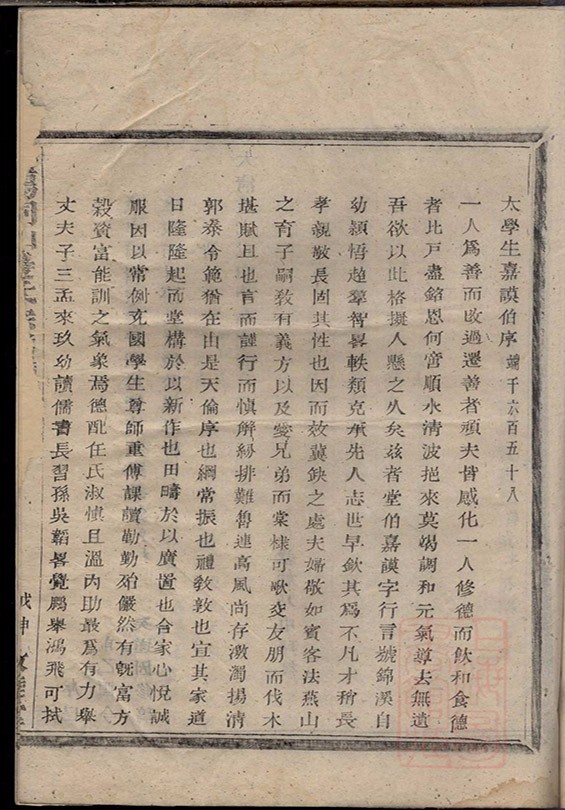 太學生嘉謨伯序 端千六百五十八
一人爲善而改過遷善者頑夫皆感化一人修德而飲和食德
者比戶盡銘恩何啻順水清波挹來莫竭調和元氣導去無遺
吾欲以此格擬人懸之久矣茲者堂伯嘉謨字行言號錦溪自
幼穎悟超羣智畧軼類克承先人志世早欽其爲不凡才稍長
孝親敬長固其性也因而效冀缺之處夫婦敬如賓客法燕山
之育子嗣教有義方以及愛兄弟而棠棣可歌交友朋而伐木
堪賦且也言而謹行而慎解紛排難魯連高風尚存激濁揚清
郭泰令範猶在由是天倫序也綱常振也禮教敦也宜其家道
日隆隆起而堂構於以新作也田疇於以廣置也合家心悅誠
服因以常例充國學生尊師重傅課讀勤勤殆儼然有既富方
穀資富能訓之氣象焉德配任氏淑慎且溫內助最爲有力舉
丈夫子三孟來玖幼讀儒書長習孫吳韜畧覺鵬舉鴻飛可拭
戊申